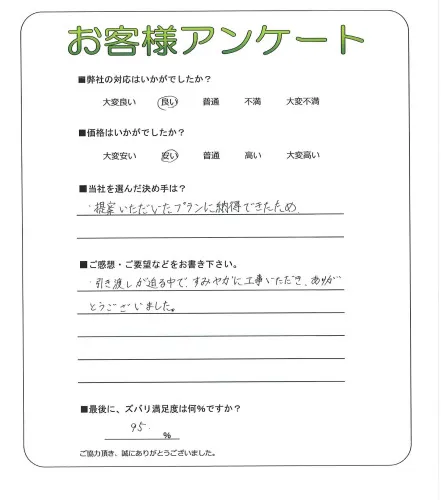 お客様アンケート
■弊社の対応はいかがでしたか？
大変良い 良い 普通 不満 大変不満
■価格はいかがでしたか？
大変安い 安い 普通 高い 大変高い
■当社を選んだ決め手は？
・提案いただいたプランに納得できたため
■ご感想・ご要望などをお書き下さい。
・引き渡しが迫る中で、すみやかに工事いただき、ありが
とうございました。
■最後に、ズバリ満足度は何％ですか？
95. %
ご協力頂き、誠にありがとうございました。